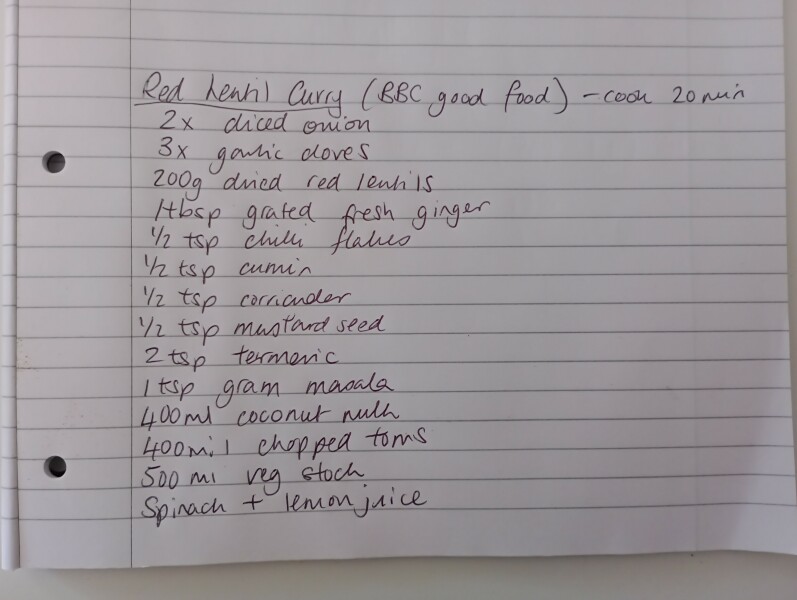 Red Lentil Curry (BBC good food) - cook 20 min
2x diced onion
3x garlic cloves
200g dried red lentils
1tbsp grated fresh ginger
1/2 tsp chilli flakes
1/2 tsp cumin
1/2 tsp corriander
1/2 tsp mustard seed
2 tsp termeric
1 tsp gram masala
400ml coconut milk
400mil chopped toms
500 ml veg stock
Spinach + lemon juice